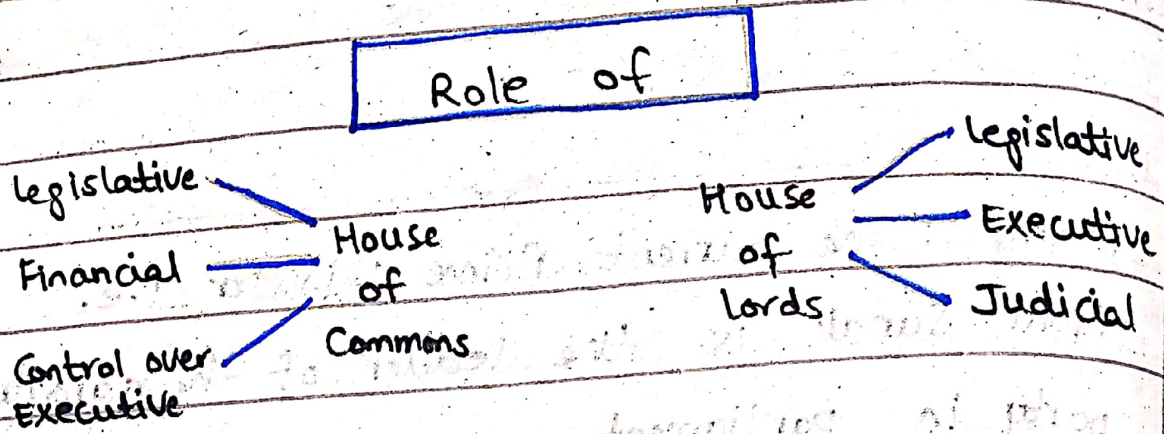 Role of
Legislative
Financial
Control over
Executive
House
of
Commons
House
of
Lords
Legislative
Executive
Judicial